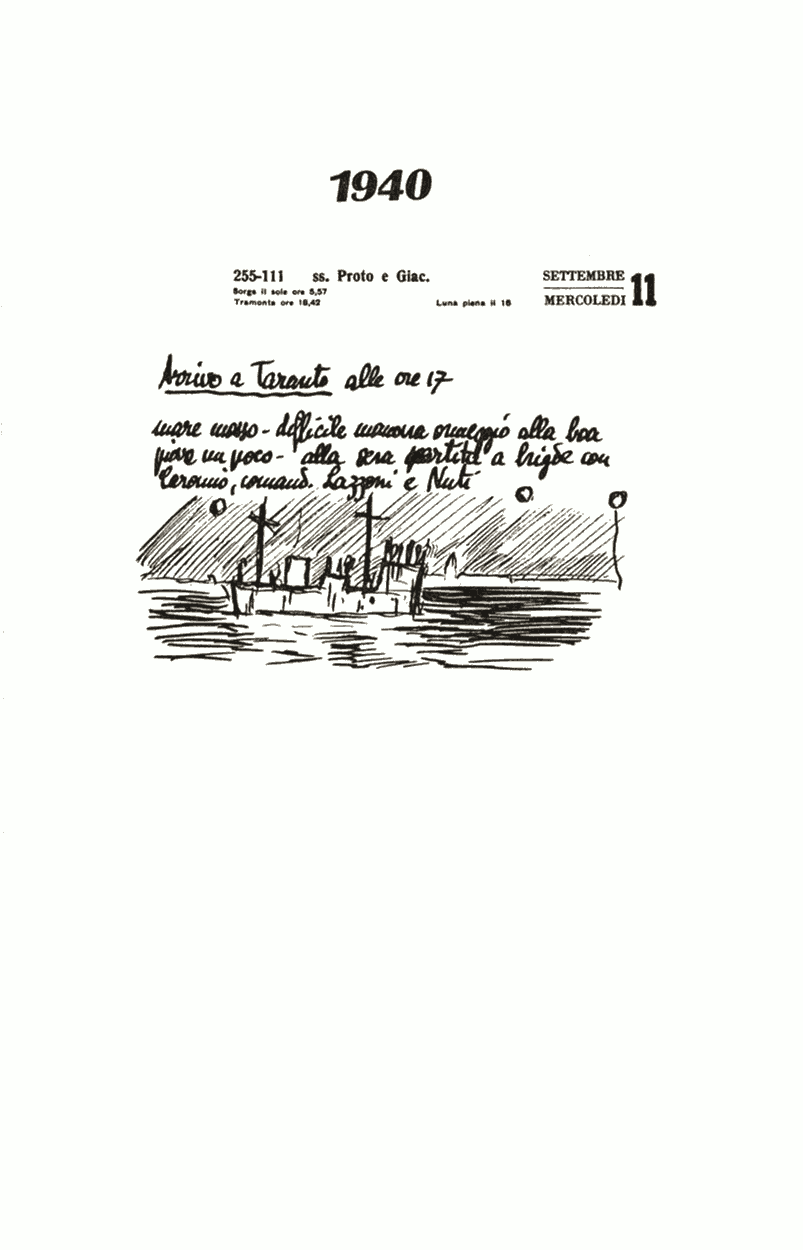 1940
255-111 ss. Proto e Giac.
Sorge il sole ore 5,57
Tramonta ore 18,42
Luna piena il 16
SETTEMBRE
MERCOLEDI
11
Arrivo a Taranto alle ore 17
mare mosso - difficile manovra ormeggio alla boa
piove un poco - alla sera partita a brigde con
comand. Lazzoni e Nuti